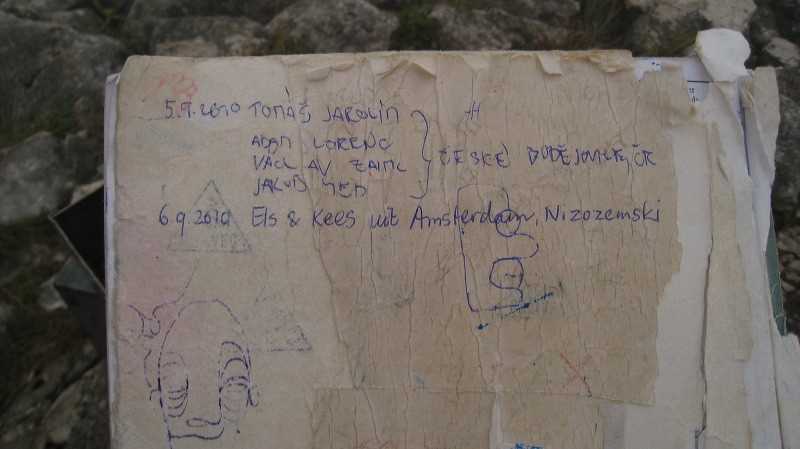 5.9.2010 TOMÁŠ JAROLÍM
ADAM LORENC
VÁCLAV ZAJAC
JAKUB
ČESKÉ BUDĚJOVICE, ČR
6.9.2010 Els & Kees uit Amsterdam, Nizozemski